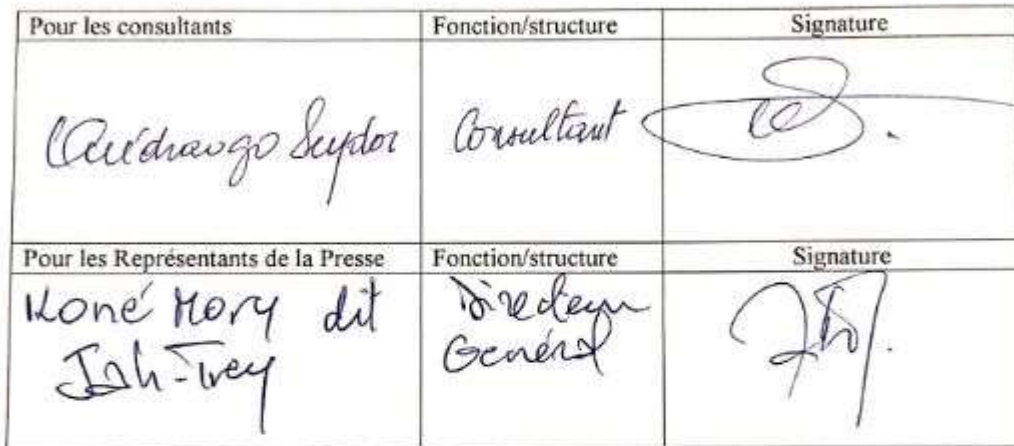 Pour les consultants Fonction/structure Signature
Ouédraogo Seydou Consultant
Pour les Représentants de la Presse Fonction/structure Signature
Koné Mory dit Directeur
Jah-Trey Général